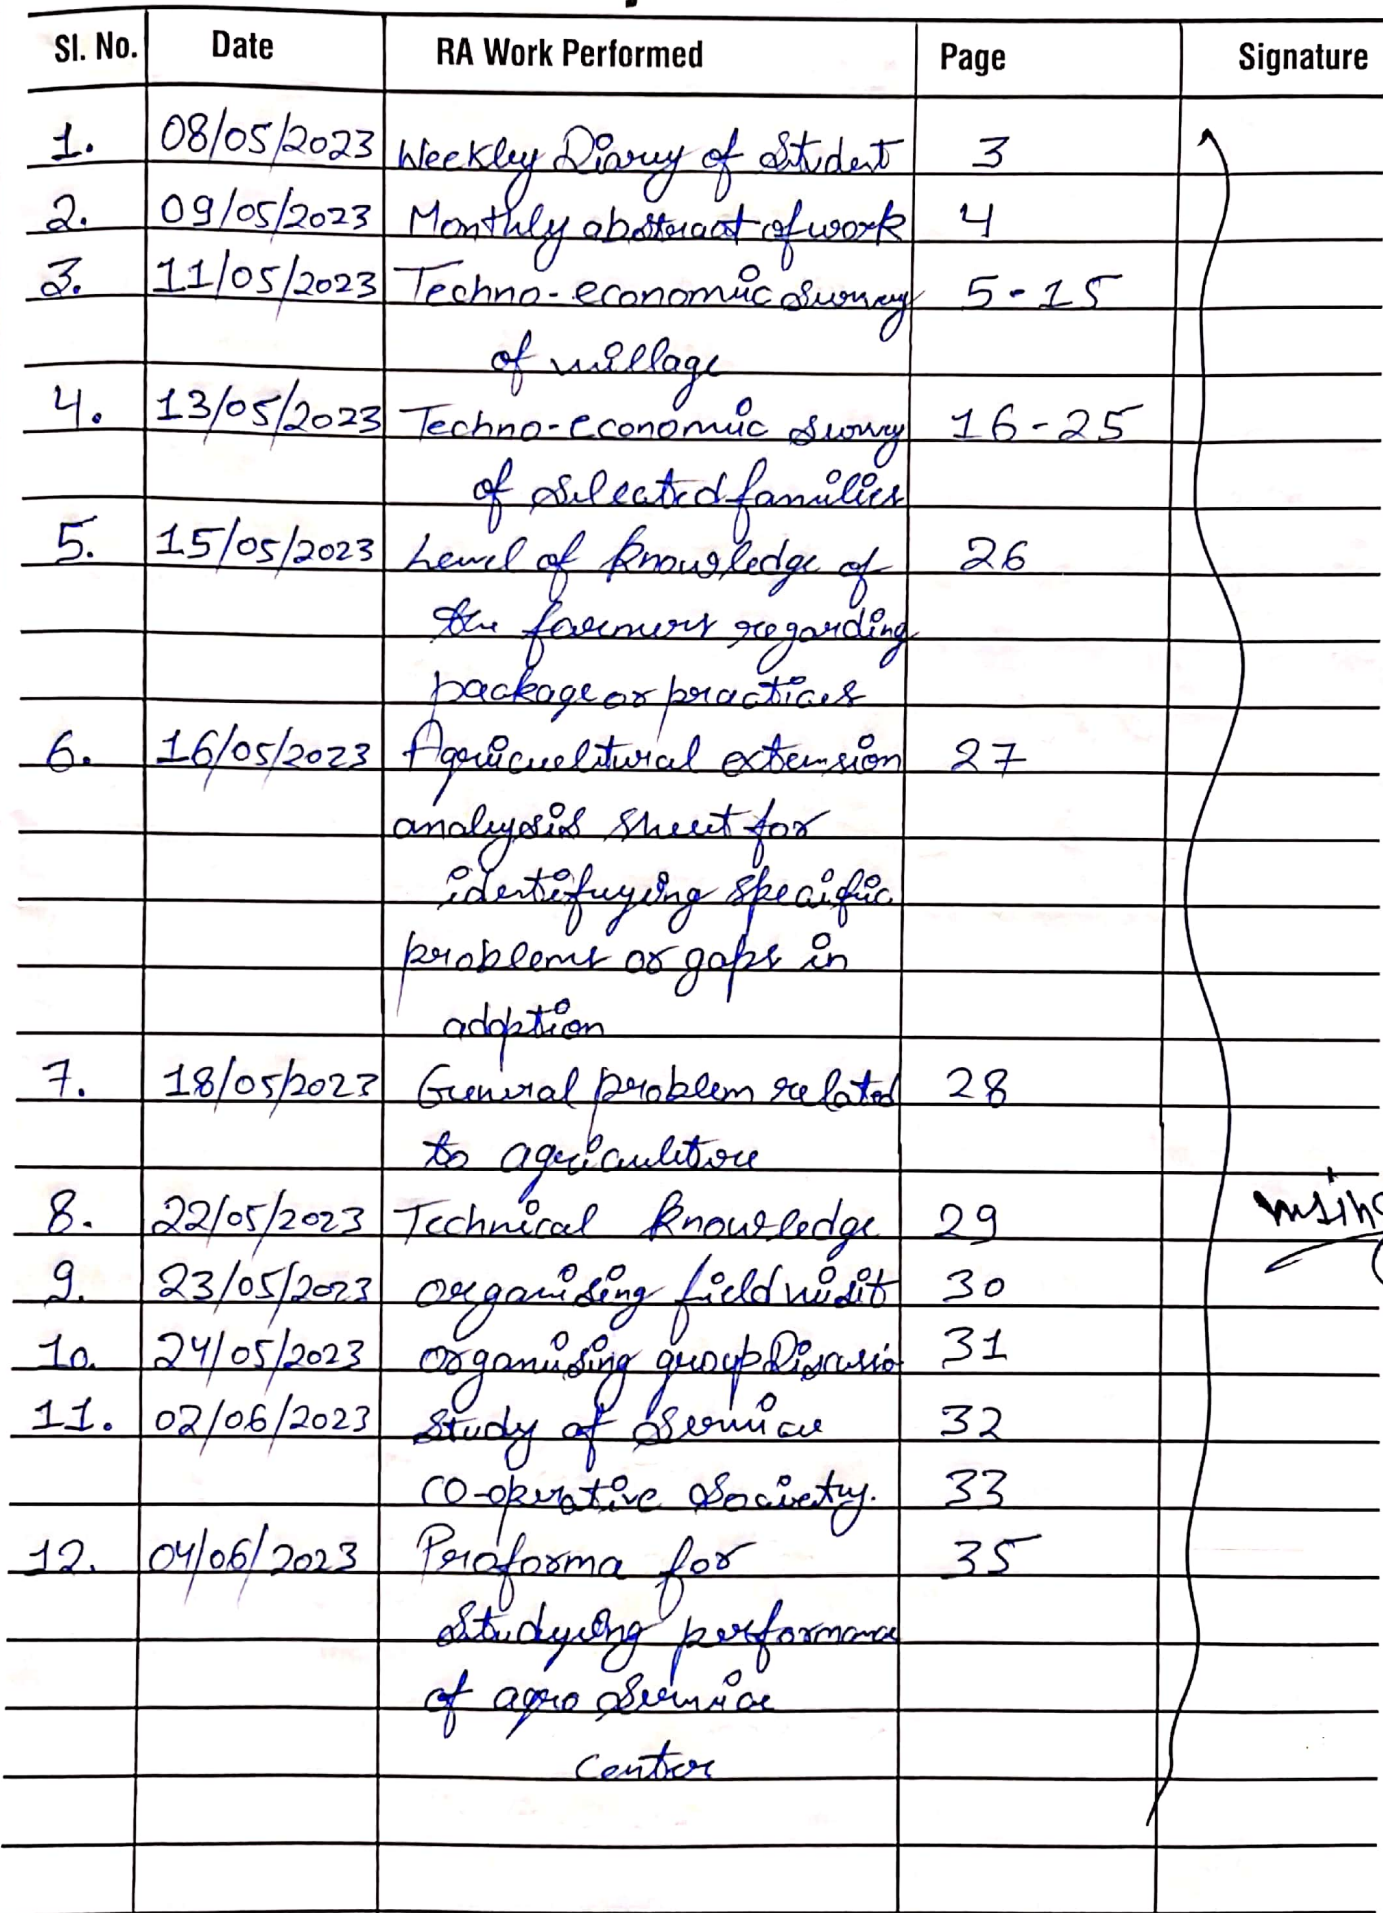 Sl. No. Date RA Work Performed Page Signature
1. 08/05/2023 Weekly Diary of Student 3
2. 09/05/2023 Monthly abstract of work 4
3. 11/05/2023 Techno-economic survey 5-15
of village
4. 13/05/2023 Techno-economic survey 16-25
of selected families
5. 15/05/2023 Level of knowledge of 26
the farmers regarding
package or practices
6. 16/05/2023 Agricultural extension 27
analysis sheet for
identifying specific
problems or gaps in
adoption
7. 18/05/2023 General problem related 28
to agriculture
8. 22/05/2023 Technical knowledge 29
9. 23/05/2023 organising field visit 30
10. 24/05/2023 organising group Discussio 31
11. 02/06/2023 Study of Service 32
CO-operative Society. 33
12. 04/06/2023 Proforma for 35
studying performance
of agro service
center